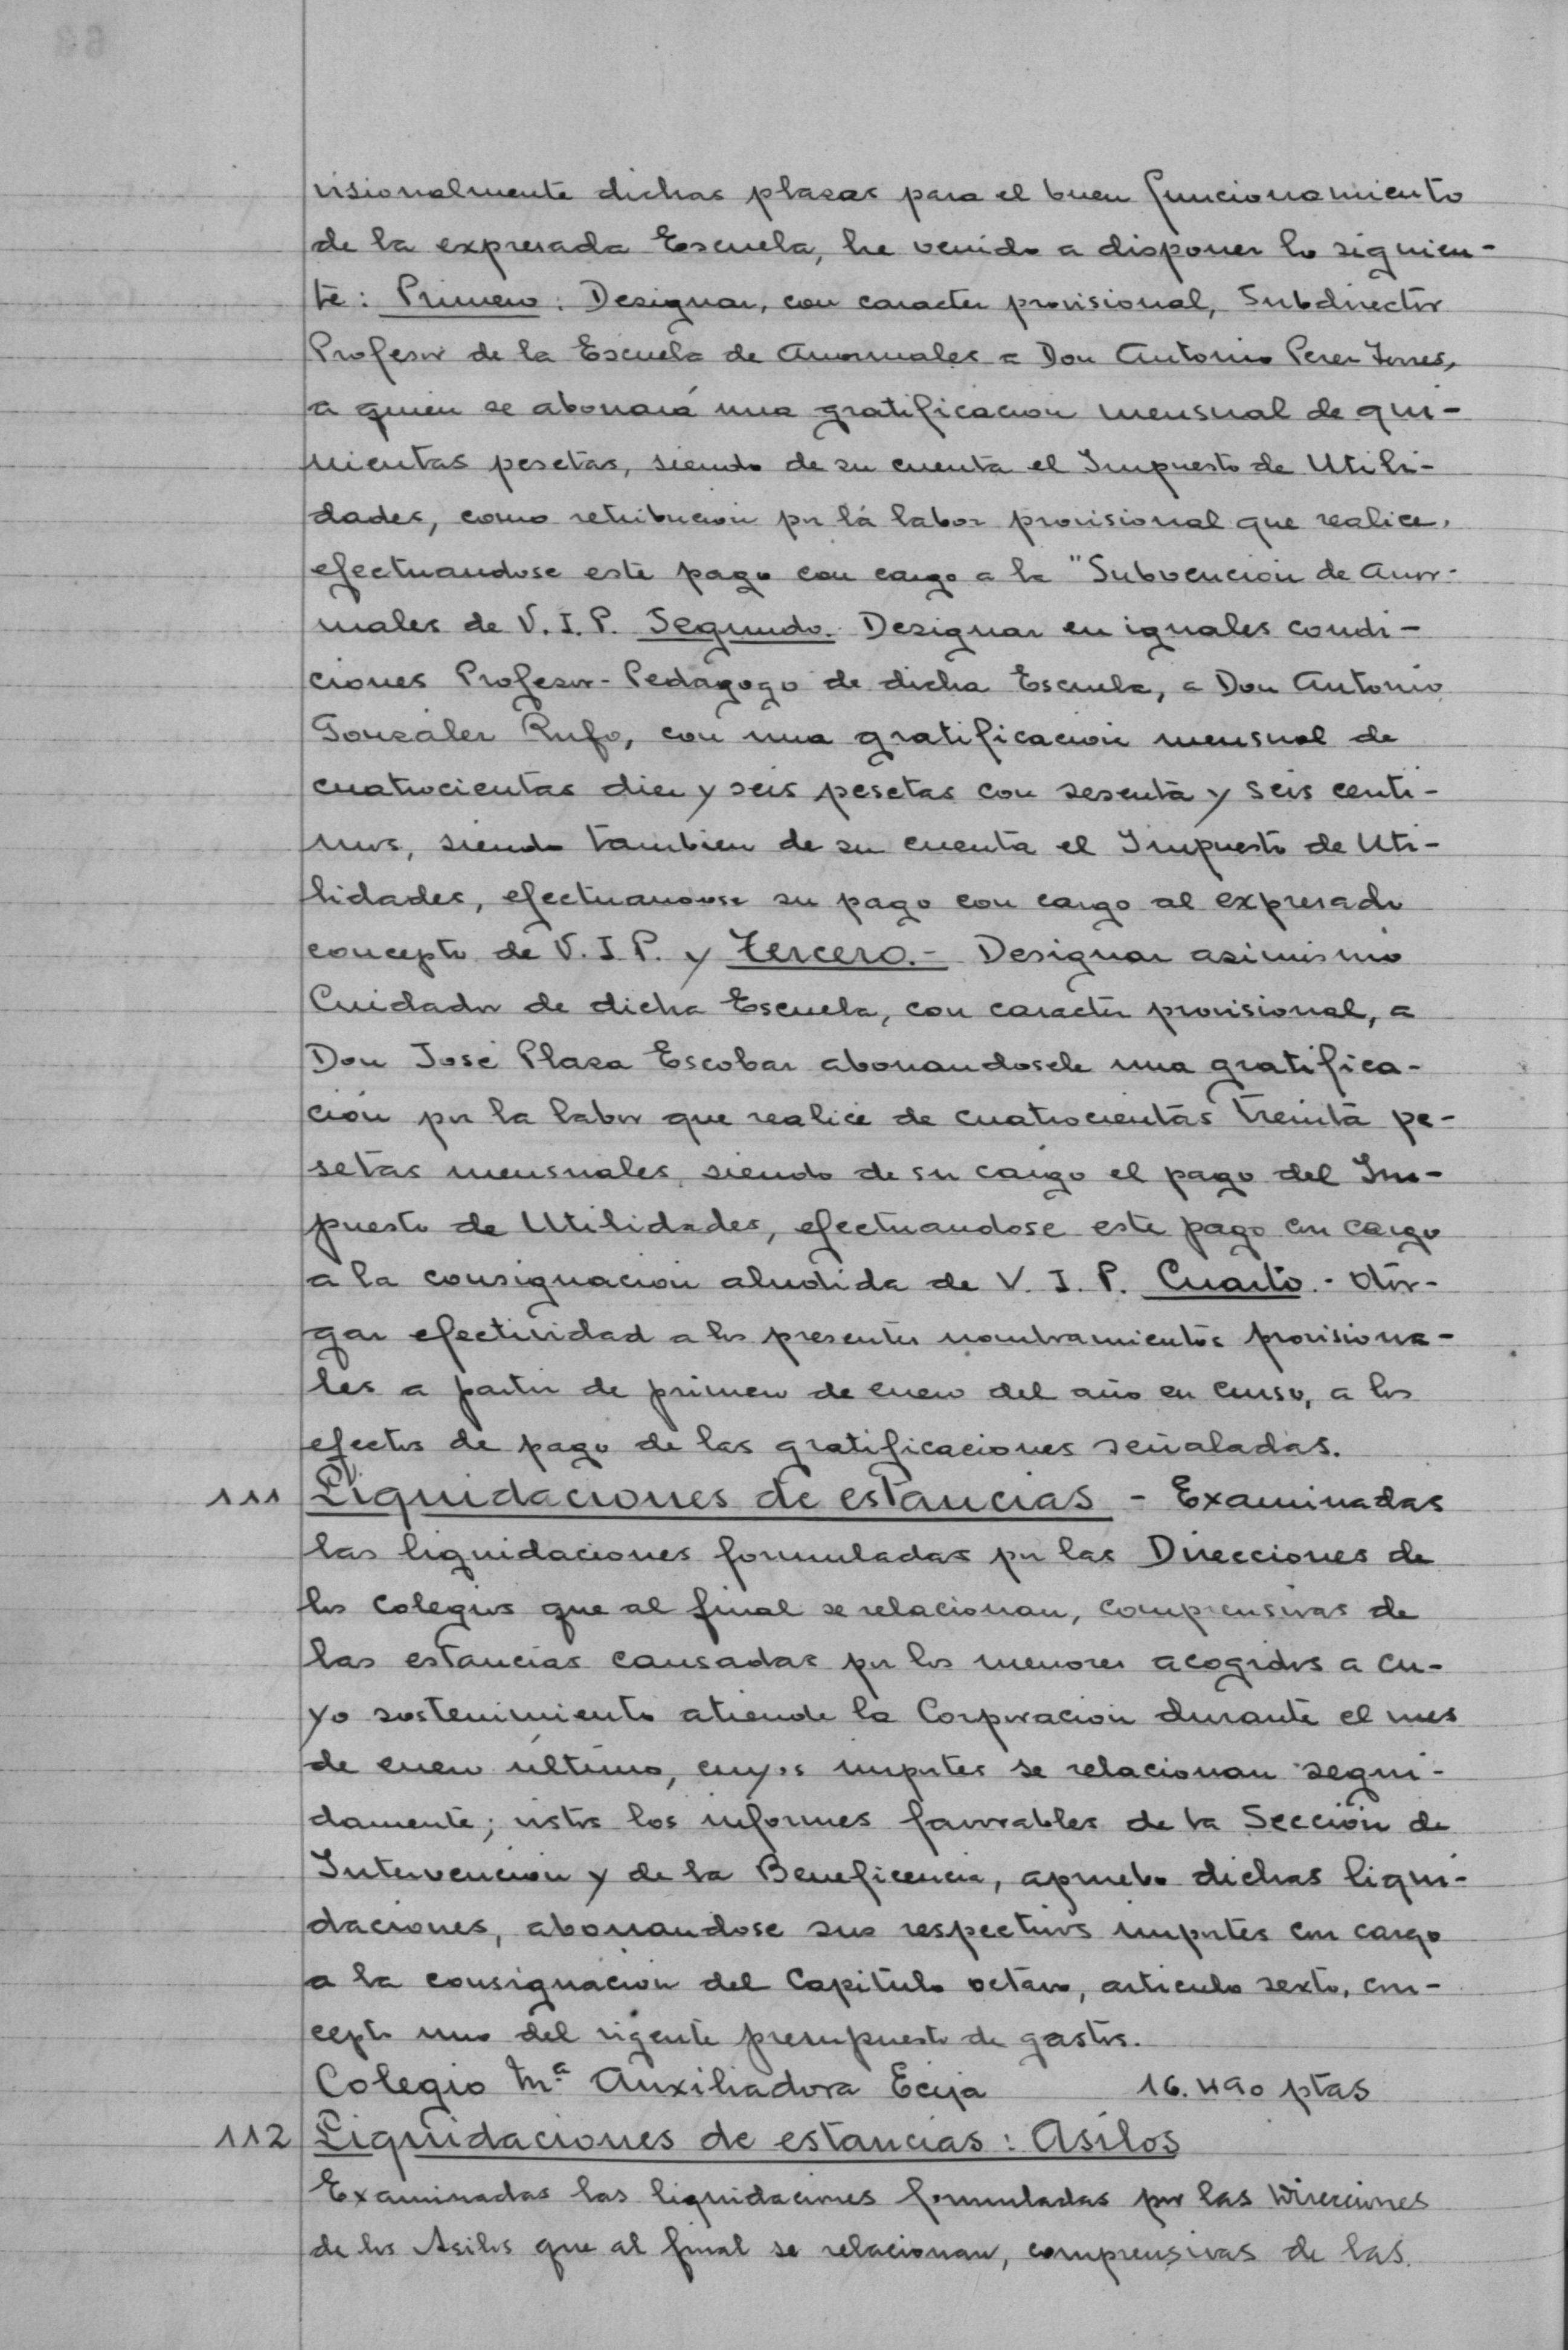 visionalmente dichas plazas para el buen funcionamiento
de la expresada Escuela, he venido a disponer lo siguien-
te: Primero: Designar, con caracter provisional, Subdirector
Profesor de la Escuela de Anormales a Don Antonio Perez Torres,
a quien se abonará una gratificacion mensual de qui-
nientas pesetas, siendo de su cuenta el Impuesto de Utili-
dades, como retribucion por la labor provisional que realice,
efectuandose este pago con cargo a la "Subvencion de Anor-
males de V.I.P. Segundo. Designar en iguales condi-
ciones Profesor-Pedagogo de dicha Escuela, a Don Antonio
Gonzalez Rufo, con una gratificacion mensual de
cuatrocientas diez y seis pesetas con sesenta y seis centi-
mos, siendo tambien de su cuenta el Impuesto de Uti-
lidades, efectuandose su pago con cargo al expresado
concepto de V.I.P. y Tercero.- Designar asimismo
Cuidador de dicha Escuela, con caracter provisional, a
Don José Plaza Escobar abonandosele una gratifica-
ción por la labor que realice de cuatrocientas treinta pe-
setas mensuales, siendo de su cargo el pago del Im-
puesto de Utilidades, efectuandose este pago con cargo
a la consignacion aludida de V. I. P. Cuarto.- Otor-
gar efectividad a los presentes nombramientos provisiona-
les a partir de primero de enero del año en curso, a los
efectos de pago de las gratificaciones señaladas.
111 Liquidaciones de estancias - Examinadas
las liquidaciones formuladas por las Direcciones de
los Colegios que al final se relacionan, comprensivas de
las estancias causadas por los menores acogidos a cu-
yo sostenimiento atiende la Corporacion durante el mes
de enero último, cuyos importes se relacionan segui-
damente; vistos los informes favorables de la Sección de
Intervencion y de la Beneficencia, apruebo dichas liqui-
daciones, abonandose sus respectivos importes con cargo
a la consignación del Capitulo octavo, articulo sexto, con-
cepto uno del vigente presupuesto de gastos.
Colegio Mª Auxiliadora Ecija 16.490 ptas
112 Liquidaciones de estancias: Asilos
Examinadas las liquidaciones formuladas por las Direcciones
de los Asilos que al final se relacionan, comprensivas de las